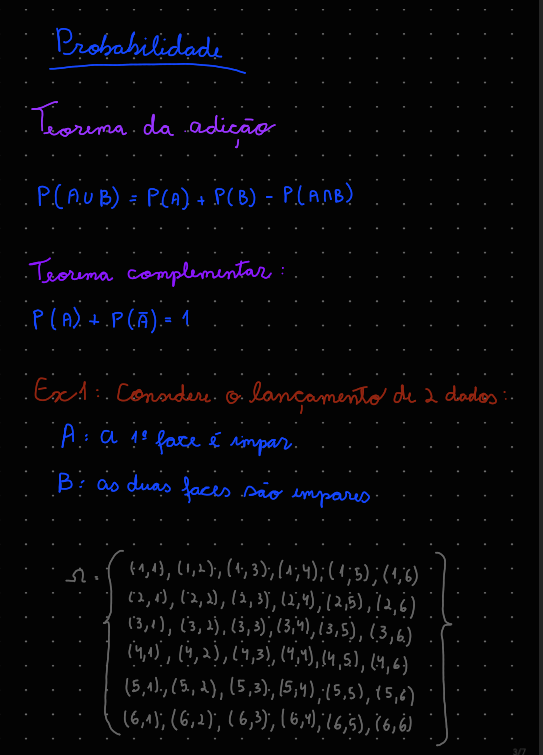 Probabilidade
Teorema da adição
P(A∪B) = P(A) + P(B) - P(A∩B)
Teorema complementar:
P(A) + P(Ā) = 1
Ex1: Considere o lançamento de 2 dados:
A: a 1ª face é impar
B: as duas faces são impares
Ω = { (1,1), (1,2), (1,3), (1,4), (1,5), (1,6)
(2,1), (2,2), (2,3), (2,4), (2,5), (2,6)
(3,1), (3,2), (3,3), (3,4), (3,5), (3,6)
(4,1), (4,2), (4,3), (4,4), (4,5), (4,6)
(5,1), (5,2), (5,3), (5,4), (5,5), (5,6)
(6,1), (6,2), (6,3), (6,4), (6,5), (6,6) }